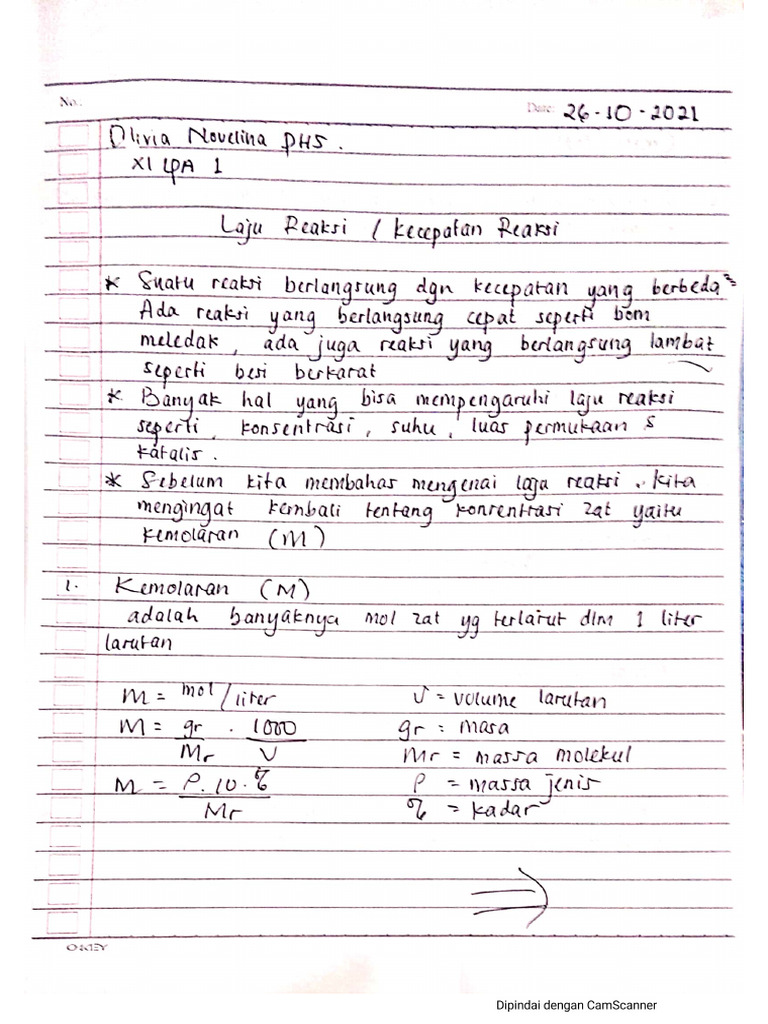 No.:
Date: 26-10-2021
Olivia Novelina PHS.
XI IPA 1
Laju Reaksi / Kecepatan Reaksi
* Suatu reaksi berlangsung dgn kecepatan yang berbeda"
Ada reaksi yang berlangsung cepat seperti bom
meledak, ada juga reaksi yang berlangsung lambat
seperti besi berkarat
* Banyak hal yang bisa mempengaruhi laju reaksi
seperti, konsentrasi, suhu, luas permukaan &
katalis.
* Sebelum kita membahas mengenai laju reaksi. kita
mengingat kembali tentang konsentrasi zat yaitu
kemolaran (M)
1. Kemolaran (M)
adalah banyaknya mol zat yg terlarut dlm 1 liter
larutan
M = mol/liter
V = volume larutan
M = gr/Mr . 1000/V
gr : masa
Mr = massa molekul
M = ρ.10.%/Mr
ρ = massa jenis
% = kadar
⇒
OKEY
Dipindai dengan CamScanner